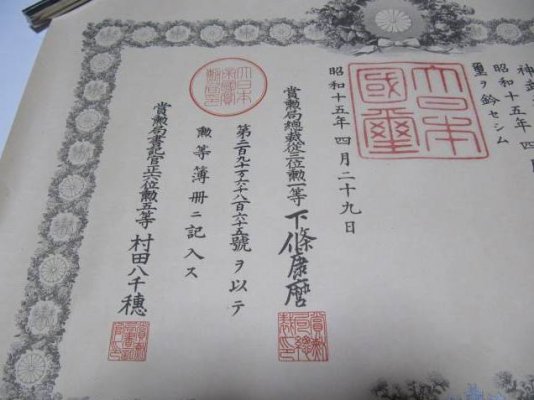 神武
昭和十五年四
璽ヲ鈐セシム
大日本國璽
昭和十五年四月二十九日
賞勲局總裁從三位勲一等 下條康麿
第二百九十万六千八百六十五號ヲ以テ
勲等簿冊ニ記入ス
賞勲局書記官正六位勲五等 村田八千穗